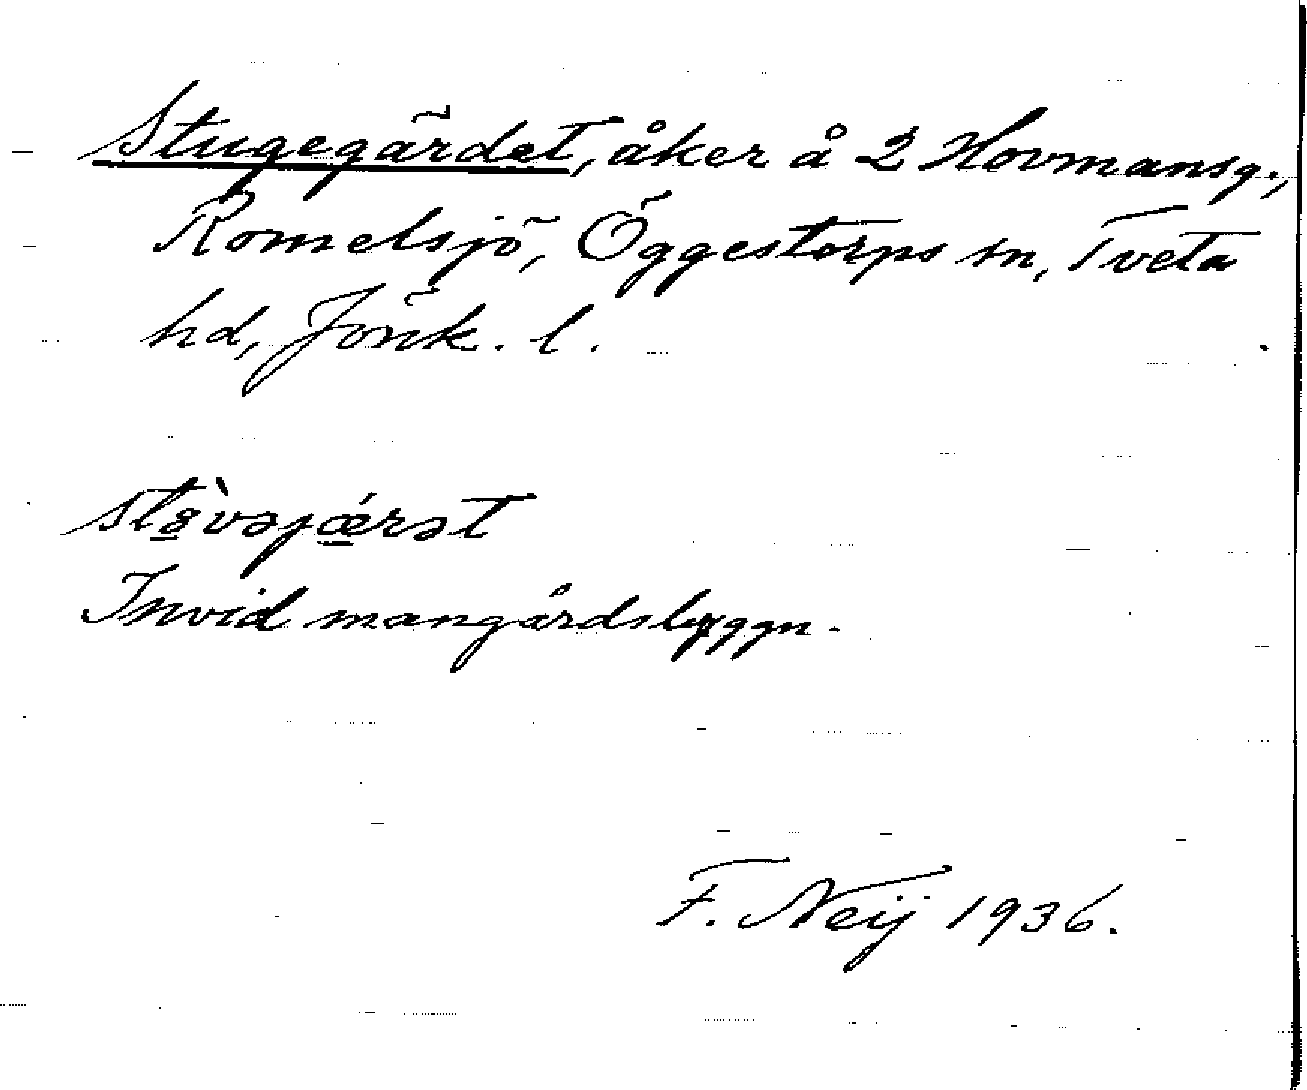 Stugegärdet, åker å 2 Hovmansg.,
Romelsjö, Öggestorps sn, Tveta
hd, Jönk. l.
Invid mangårdsbyggn.
F. Neij 1936.